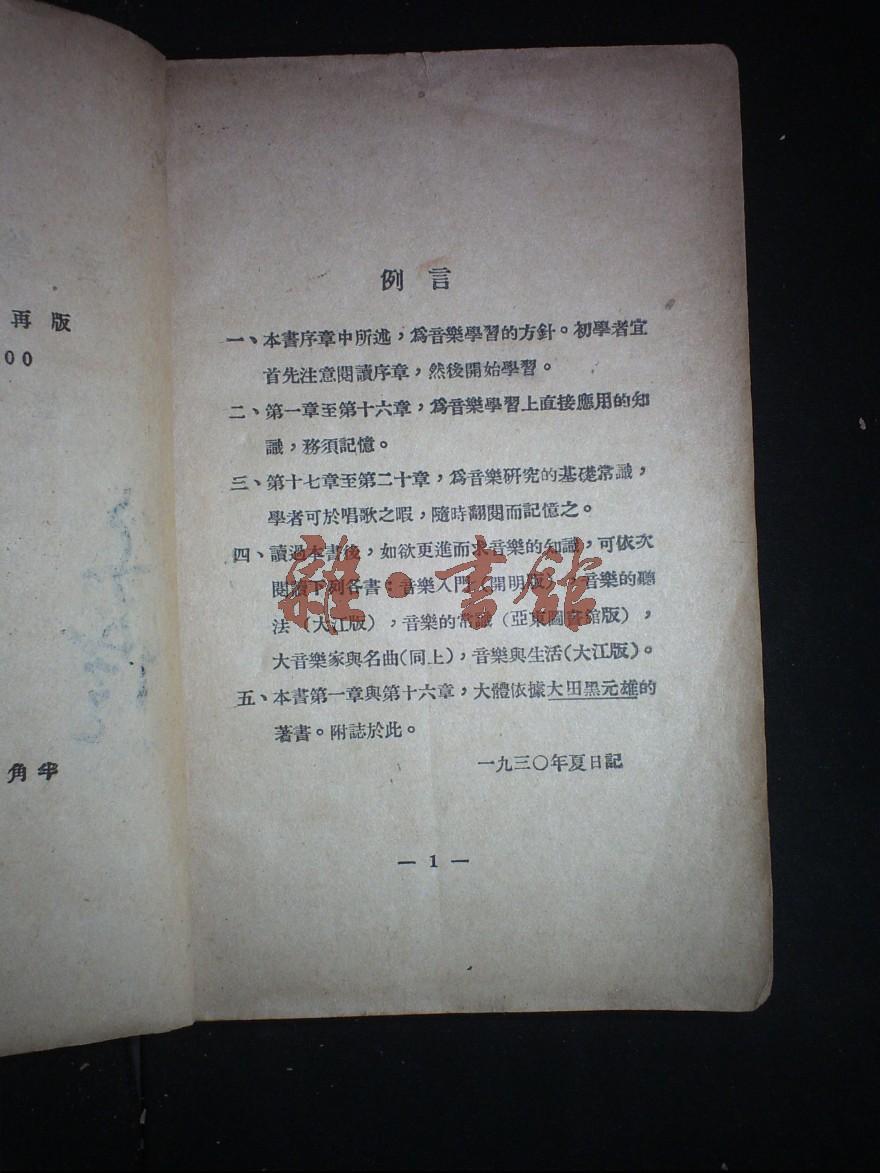 再版
00
角半
例言
一、本書序章中所述，爲音樂學習的方針。初學者宜
首先注意閱讀序章，然後開始學習。
二、第一章至第十六章，爲音樂學習上直接應用的知
識，務須記憶。
三、第十七章至第二十章，爲音樂硏究的基礎常識，
學者可於唱歌之暇，隨時翻閱而記憶之。
四、讀過本書後，如欲更進而求音樂的知識，可依次
閱讀下列各書：音樂入門（開明版），音樂的聽
法（大江版），音樂的常識（亞東圖書館版），
大音樂家與名曲(同上)，音樂與生活(大江版)。
五、本書第一章與第十六章，大體依據大田黑元雄的
著書。附誌於此。
一九三〇年夏日記
— 1 —
雜·書館